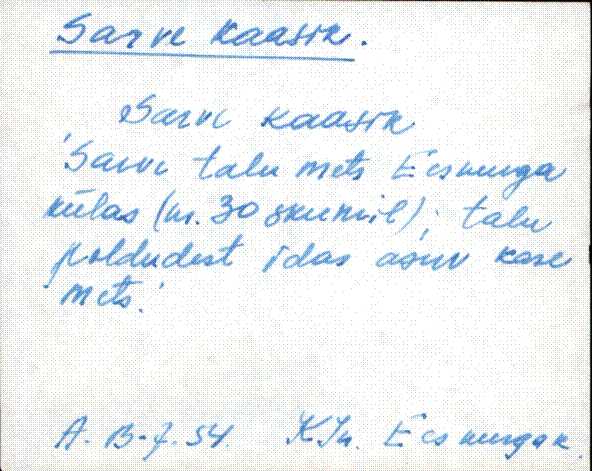 Sarve kaasik.
Sarve kaasik
'Sarve talu mets Eesnurga
külas (nr. 30 skeemil); talu
põldudest idas asuv kase
mets.'
A. B-7. 54. KJn. Eesnurga k.